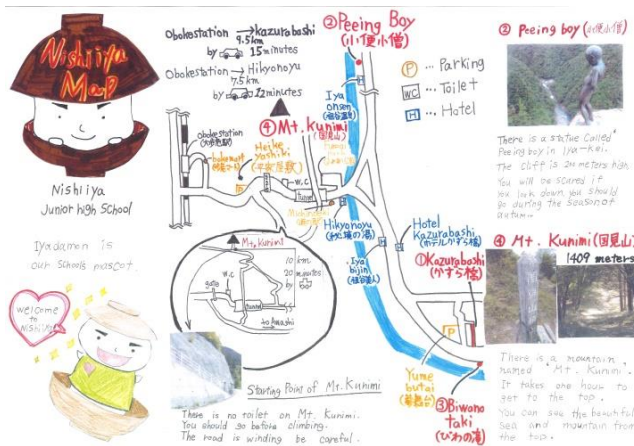 Nishiiya
Map
Nishiiya
Junior high School
Iyadamon is
our schools mascot.
welcome
to
Nishiiya
Obokestation → kazurabashi
9.5km
by 15minutes
Obokestation → Hikyonoyu
7.5km
by 22minutes
②Peeing Boy
(小便小僧)
P … Parking
WC … Toilet
H … Hotel
Iya
onsen
(祖谷温泉)
④Mt.Kunimi
(国見山)
obokestation
(大歩危駅)
Heike
yashiki
(平家屋敷)
W.C
tunnel
Hikyonoyu
(秘境の湯)
Hotel
Kazurabashi
(ホテルかずら橋)
Iya
bijin
(祖谷美人)
①Kazurabashi
(かずら橋)
Mt.Kunimi
10 km
20 minutes
by
W.C
gate
tunnel
P
Yume
butai
(夢舞台)
③Biwano
taki
(びわの滝)
Starting Point of Mt.Kunimi
There is no toilet on Mt. Kunimi.
You should go before climbing.
The road is winding be careful.
② Peeing boy (小便小僧)
There is a statue called
Peeing boy in Iya-kei.
The cliff is 200 meters high.
You will be scared if
you look down you should
go during the season of
autumn.
④ Mt. Kunimi (国見山)
1409 meters
There is a mountain
named "Mt. Kunimi".
It takes one hour to
get to the top.
You can see the beautiful
sea and mountain from
the top.